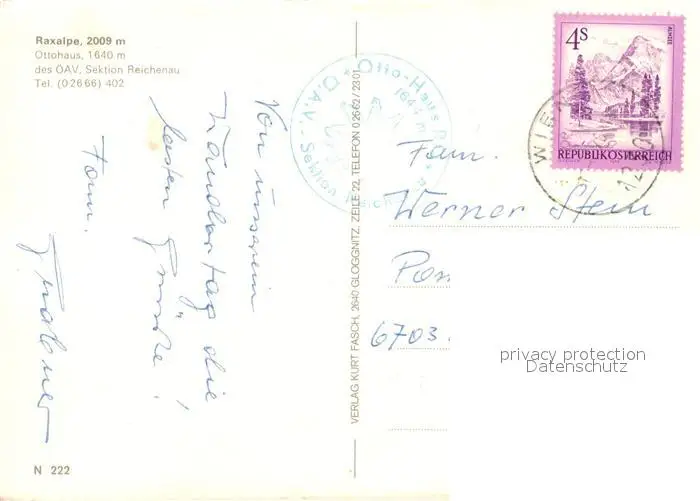 Raxalpe, 2009 m
Ottohaus, 1640 m
des ÖAV, Sektion Reichenau
Tel. (02666) 402
Von unserem
Wandertag die
besten Grüsse!
Fam.
N 222
VERLAG KURT FASCH, 2640 GLOGGNITZ, ZEILE 22, TELEFON 02662/2301
Otto-Haus
1644 m
Ö.A.V. Sektion Reichenau
4S
ALMSEE
REPUBLIK ÖSTERREICH
WIE
Fam.
Werner Stein
Pon
6703.
privacy protection
Datenschutz